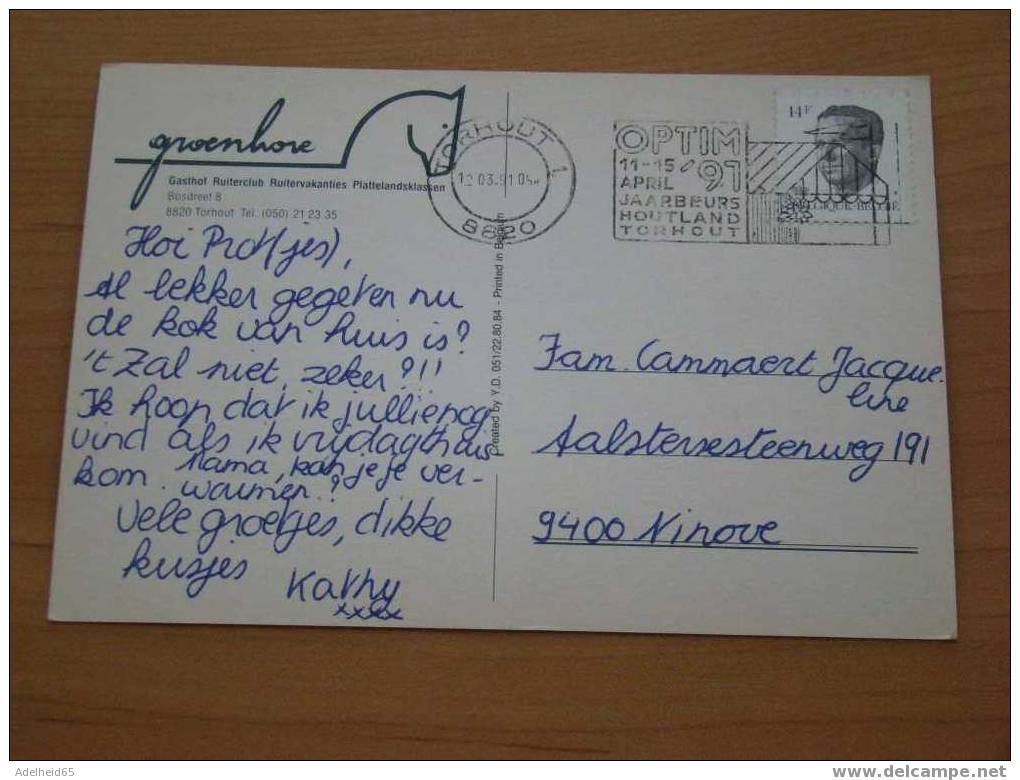 groenhove
Gasthof Ruiterclub Ruitervakanties Plattelandsklassen
Bosdreef 8
8820 Torhout Tel. (050) 21 23 35
TORHOUT 1
12 03.91
8820
OPTIM
11-15 '91
APRIL
JAARBEURS
HOUTLAND
TORHOUT
14F
BELGIQUE-BELGIE
Hoi Prot(jes),
Al lekker gegeten nu
de kok van huis is?
't Zal niet, zeker?!!
Ik hoop dat ik jullie nog
vind als ik vrijdag thuis
kom. Mama, kan je je ver-
warmen?
Vele groetjes, dikke
kusjes
Kathy
xxxx
Created by Y.D. 051/22.80.84 - Printed in Belgium
Fam. Cammaert Jacque-
line
Aalstersesteenweg 191
9400 Ninove
Adelheid65
www.delcampe.net